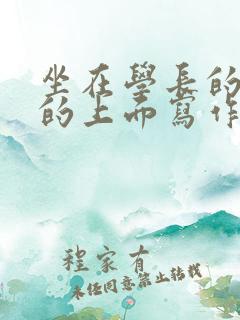 坐在學長的
的上面寫作
程家有
未任同意禁止转载